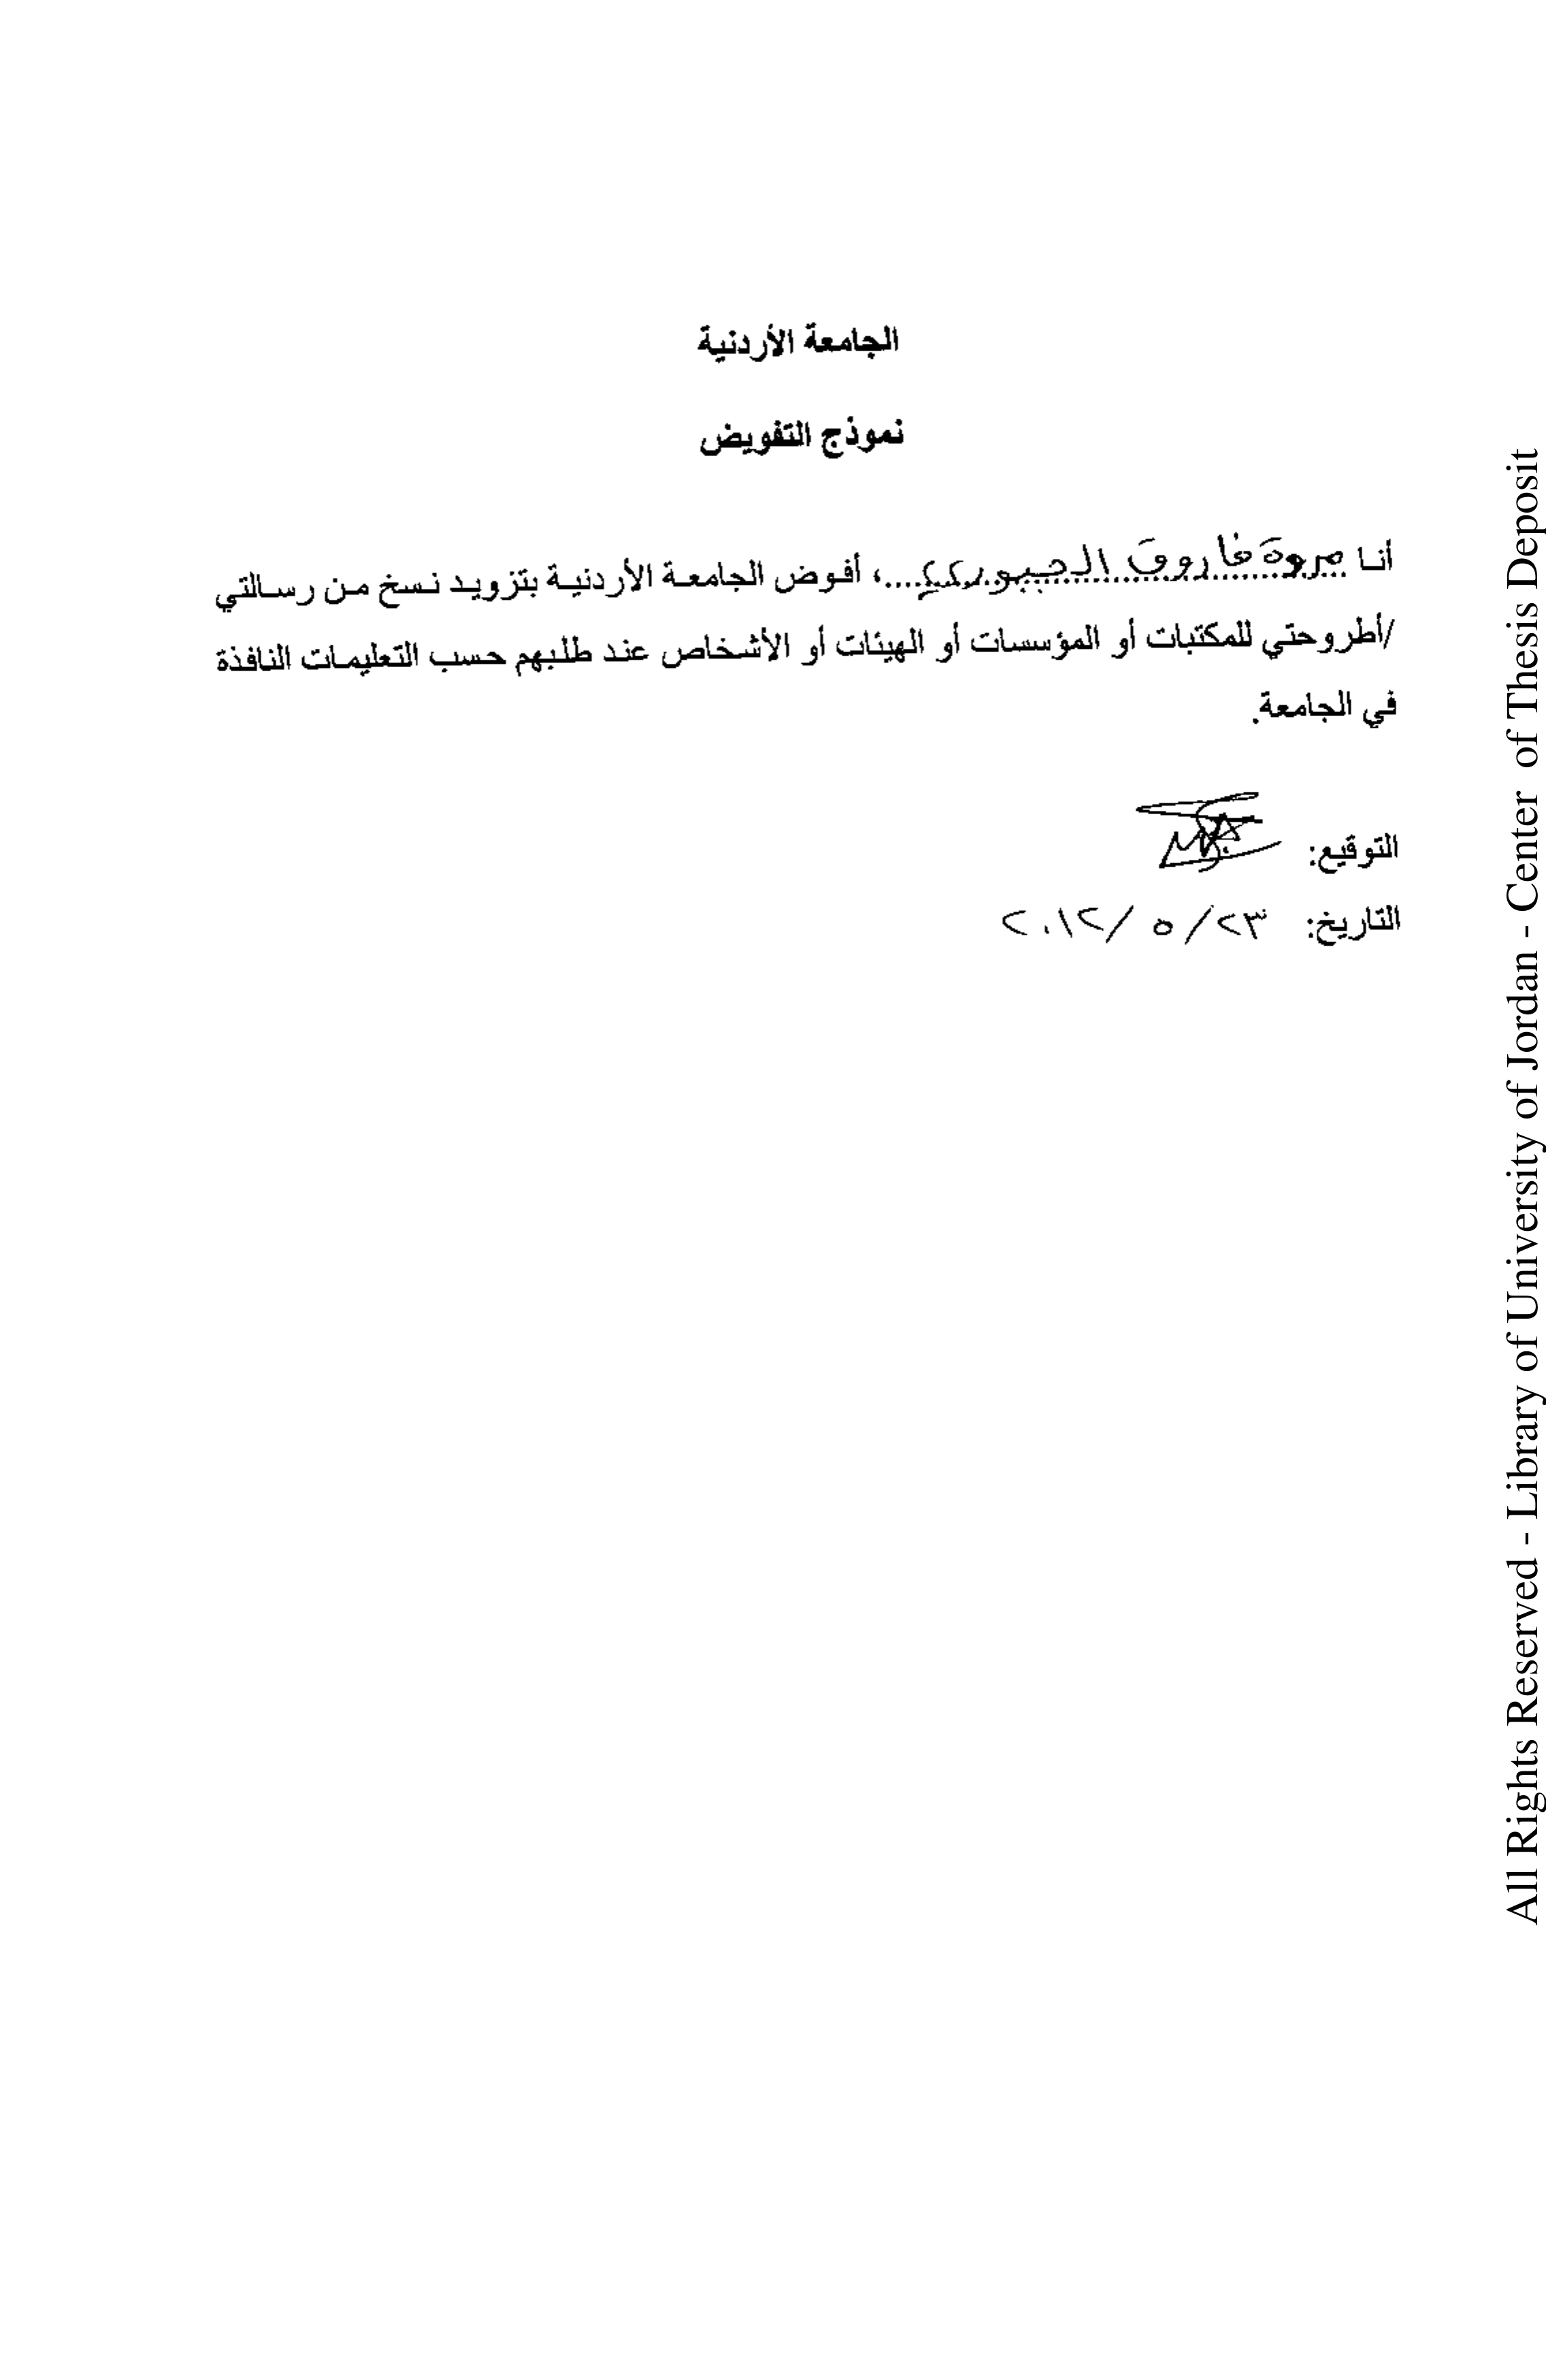 الجامعة الأردنية
نموذج التفويض
أنا مروة فاروق الجبوري....، أفوض الجامعة الأردنية بتزويد نسخ من رسالتي
/أطروحتي للمكتبات أو المؤسسات أو الهيئات أو الأشخاص عند طلبهم حسب التعليمات النافذة
في الجامعة.
التوقيع:
التاريخ: ٢٣/ ٥ /٢٠١٢
All Rights Reserved - Library of University of Jordan - Center of Thesis Deposit